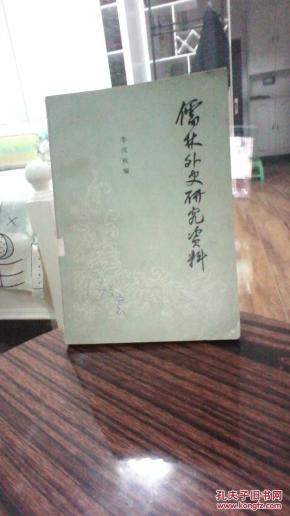 儒林外史研究资料
李汉秋编
孔夫子旧书网